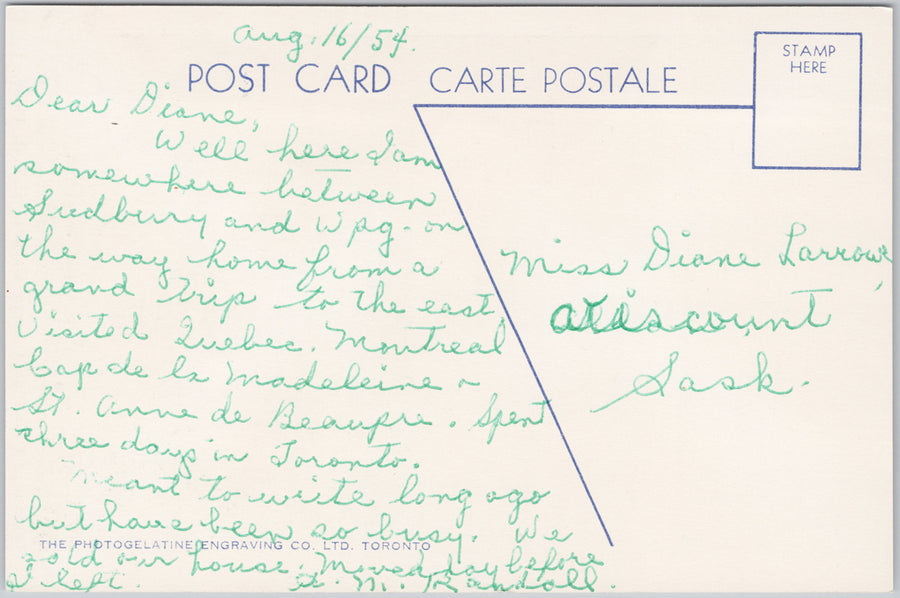 Aug. 16/54.
POST CARD CARTE POSTALE
STAMP
HERE
Dear Diane,
Well here I am
somewhere between
Sudbury and Wpg. on
the way home from a
grand trip to the east
Visited Quebec. Montreal
Cap de la Madeleine ~
St. Anne de Beaupre. Spent
three days in Toronto.
Meant to write long ago
but have been so busy. We
sold our house. Moved day before
I left. M. Randall.
Miss Diane Larrowe,
Sask.
THE PHOTOGELATINE ENGRAVING CO. LTD. TORONTO